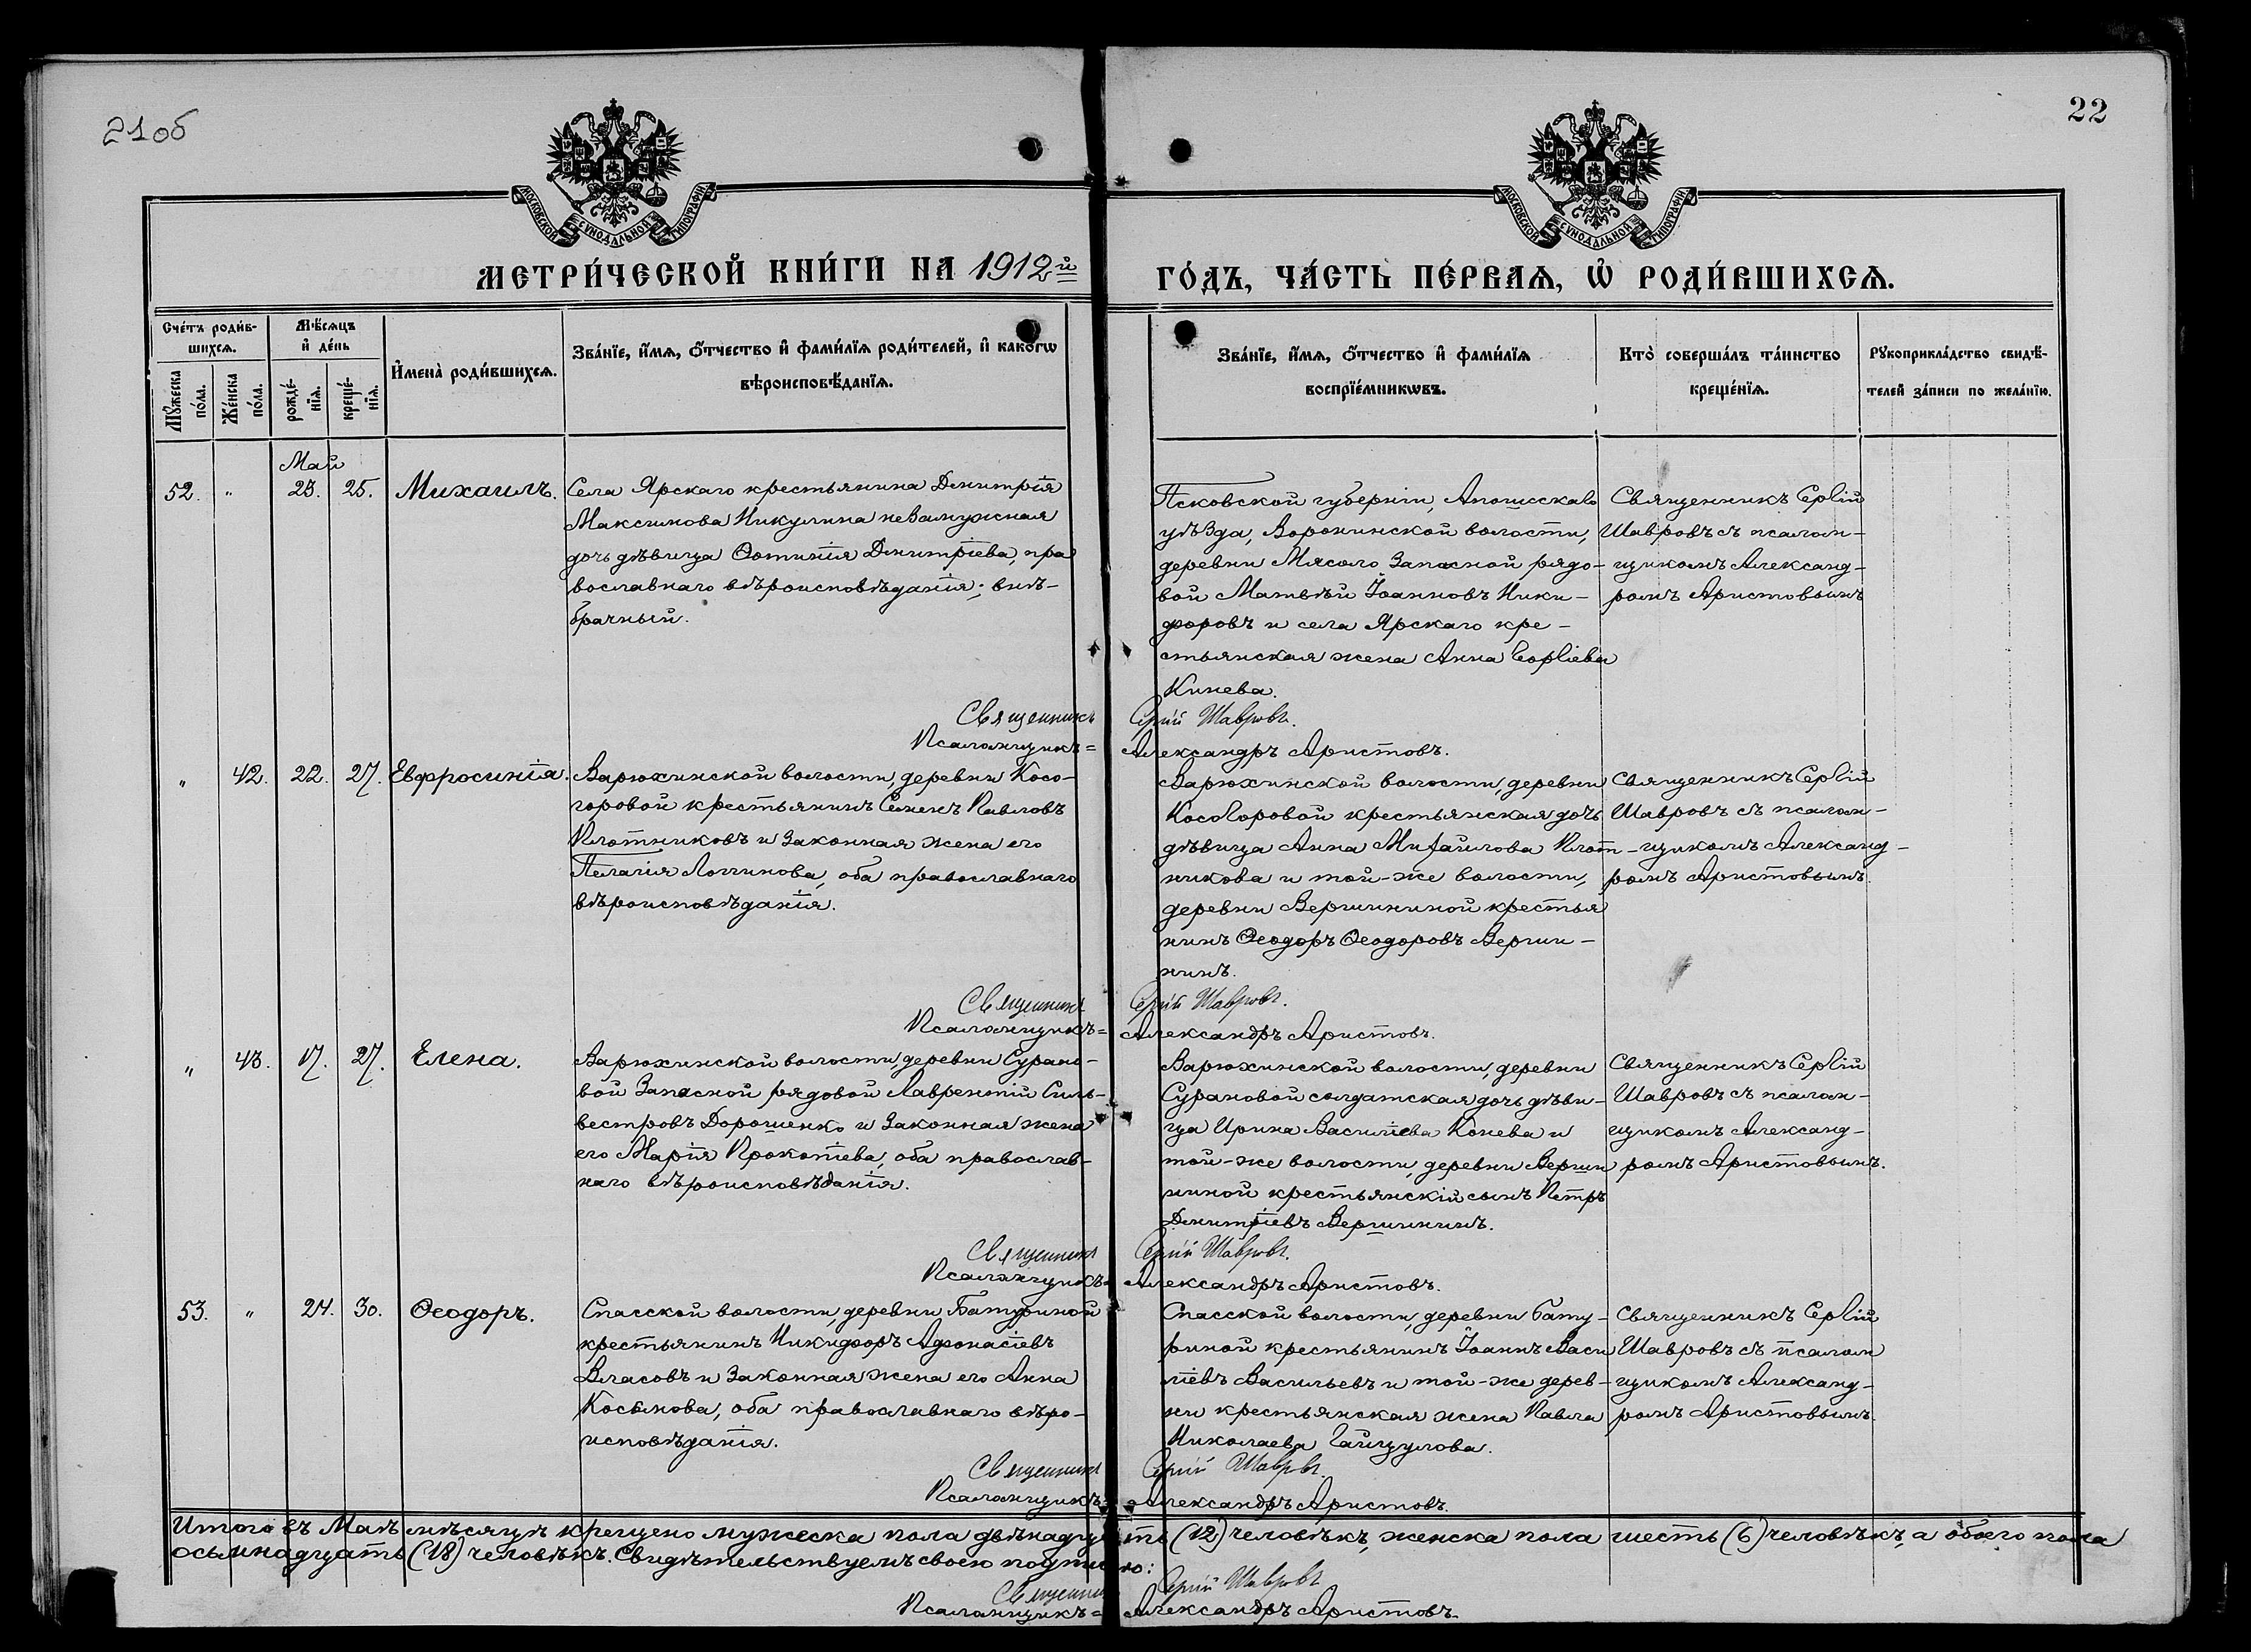 21об
22
МОСКОВСКОЙ СѴНОДАЛЬНОЙ ТИПОГРАФІИ
МОСКОВСКОЙ СѴНОДАЛЬНОЙ ТИПОГРАФІИ
МЕТРИ́ЧЕСКОЙ КНИ́ГИ НА 1912й
ГО́ДЪ, ЧА́СТЬ ПЕ́РВАѦ, Ѡ҆ РОДИ́ВШИХСѦ.
Сче́тъ роди́в-
шихсѧ.
Мꙋ́жеска по́ла.
Же́нска по́ла.
Мѣ́сѧцъ
и҆ де́нь
рожде́-
нїѧ.
креще́-
нїѧ.
И҆мена̀ роди́вшихсѧ.
Зва́нїе, и҆́мѧ, ѻ҆́тчество и҆ фами́лїѧ роди́телей, и҆ како́гѡ
вѣроисповѣ́данїѧ.
Зва́нїе, и҆́мѧ, ѻ҆́тчество и҆ фами́лїѧ
воспрїе́мникѡвъ.
Кто̀ соверша́лъ та́инство
креще́нїѧ.
Рꙋкоприкла́дство свидѣ́-
телей за́писи по жела́нїю.
Май
52. " 23. 25. Михаилъ.
Села Ярскаго крестьянина Димитрія
Максимова Никулина незамужная
дочь дѣвица Ѳотинія Димитріева, пра
вославнаго вѣроисповѣданія; внѣ-
брачный.
Псковской губерніи, Апошскаго
уѣзда, Воронинской волости,
деревни Мясово запасной рядо-
вой Матвѣй Іоанновъ Ники-
форовъ и села Ярскаго кре-
стьянская жена Анна Сергіева
Кинева.
Священникъ Сергій
Шавровъ съ псалом-
щикомъ Александ-
ромъ Аристовымъ
Священникъ Сергій Шавровъ.
Псаломщикъ= Александръ Аристовъ.
" 42. 22. 27. Евфросинія.
Варюхинской волости, деревни Косо-
горовой крестьянинъ Семенъ Павловъ
Плотниковъ и законная жена его
Пелагія Логгинова, оба православнаго
вѣроисповѣданія.
Варюхинской волости, деревни
Косогоровой крестьянская дочь
дѣвица Анна Михайлова Плот-
никова и той-же волости,
деревни Вершининой крестья
нинъ Ѳеодоръ Ѳеодоровъ Верши-
нинъ.
Священникъ Сергій
Шавровъ съ псалом-
щикомъ Александ-
ромъ Аристовымъ.
Священникъ Сергій Шавровъ.
Псаломщикъ= Александръ Аристовъ.
" 43. 17. 27. Елена.
Варюхинской волости, деревни Сурано-
вой запасной рядовой Лаврентій Силь-
вестровъ Дорошенко и законная жена
его Марія Прокопіева, оба православ-
наго вѣроисповѣданія.
Варюхинской волости, деревни
Сурановой солдатская дочь дѣви-
ца Ирина Василіева Конева и
той-же волости, деревни Верши
ниной крестьянскій сынъ Петръ
Димитріевъ Вершининъ.
Священникъ Сергій
Шавровъ съ псалом-
щикомъ Александ-
ромъ Аристовымъ.
Священникъ Сергій Шавровъ.
Псаломщикъ= Александръ Аристовъ.
53. " 24. 30. Ѳеодоръ.
Спасской волости, деревни Батуриной
крестьянинъ Никифоръ Афонасіевъ
Власовъ и законная жена его Анна
Косьмова, оба православнаго вѣро-
исповѣданія.
Спасской волости, деревни Бату-
риной крестьянинъ Іоаннъ Васи
ліевъ Васильевъ и той-же дерев-
ни крестьянская жена Павла
Николаева Гайцулова.
Священникъ Сергій
Шавровъ съ псалом
щикомъ Александ-
ромъ Аристовымъ.
Священникъ Сергій Шавровъ.
Псаломщикъ= Александръ Аристовъ.
Итого въ Маѣ мѣсяцѣ крещено мужеска пола двѣнадцать (12) человѣкъ, женска пола шесть (6) человѣкъ, а обоего пола
осьмнадцать (18) человѣкъ. Свидѣтельствуемъ своею подписью:
Священникъ Сергій Шавровъ
Псаломщикъ= Александръ Аристовъ.